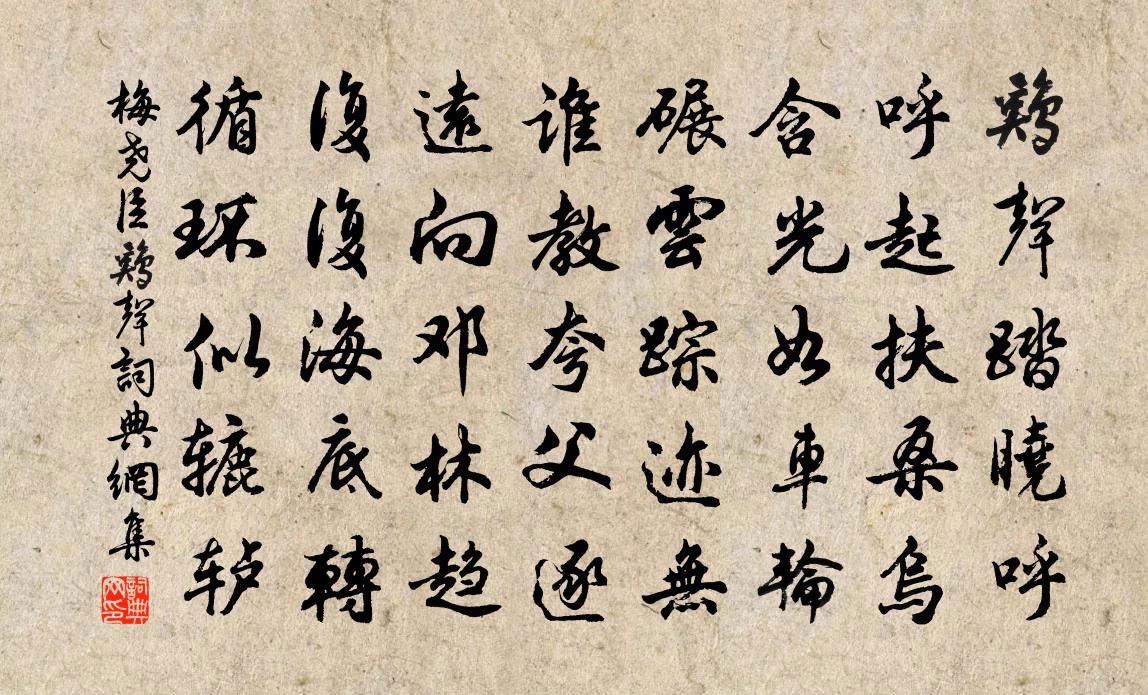 鷄聲踏曉呼
呼起扶桑烏
含光如車輪
碾雲踪迹無
誰教夸父逐
遠向邓林趋
復復海底轉
循环似辘轳
梅尧臣鷄聲詞典網集
詞典网印